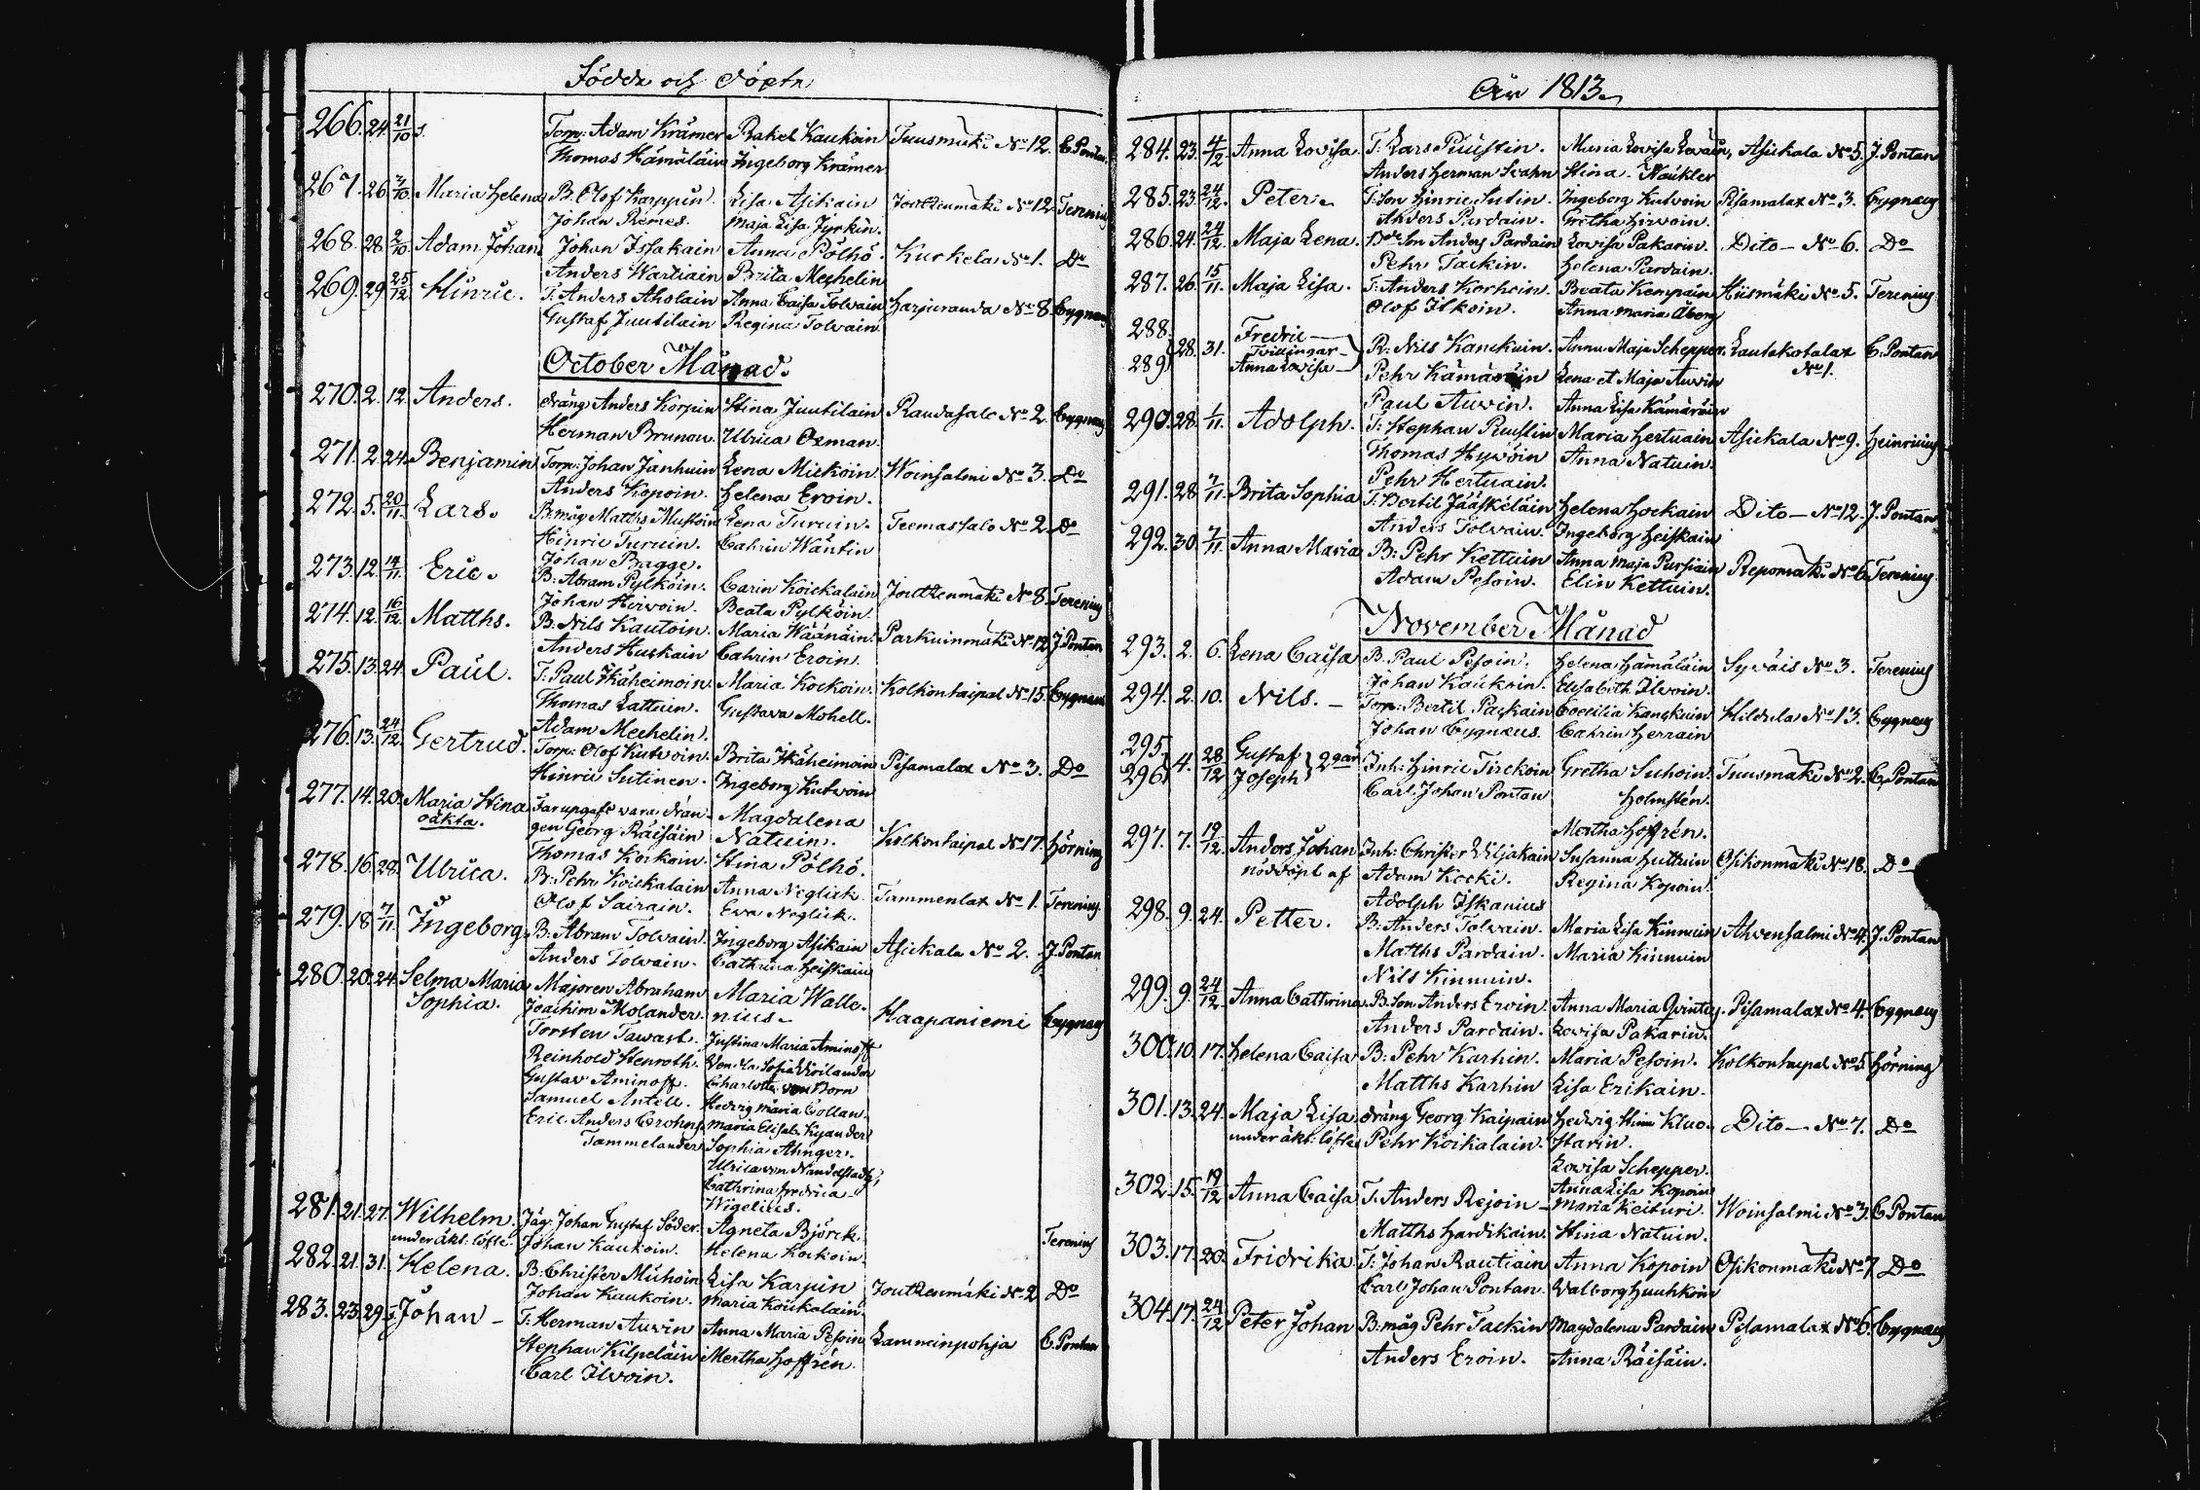 Födde och döpte
266. 24. 21/10 s. Torp: Adam Krämer Rakel Kaukoin Tuusmäki No 12. C. Pontan
Thomas Hämäläin Ingeborg Krämer
267. 26 3/10. Maria Helena B. Olof Karppin Lisa Asikain Jouttenmäki No 12 Terenius
Johan Remes. Maja Lisa Jyrkin.
268. 28. 2/10. Adam Johan Johan Issakain Anna Pölhö. Kurkela No 1. Do
Anders Wartiain Brita Mechelin
269. 29. 25/12. Hinric. T. Anders Aholain Anna Caisa Tolvain Harjuranda No 8. Cygnæus
Gustaf Juutilain Regina Tolvain
October Månad.
270. 2. 12. Anders. dräng Anders Korpin Stina Juutilain Raudasalo No 2. Cygnæus
Herman Brunou. Ulrica Oxman.
271. 2. 24. Benjamin Torp: Johan Janhuin Lena Mickoin Woinsalmi No 3. Do
Anders Kopoin. Helena Eroin.
272. 5. 20/11. Lars. B. måg Matths Mustoin Lena Turuin. Teemassalo No 2. Do
Hinric Turuin. Cahrin Wäntin
Johan Bragge.
273. 12. 14/11. Eric. B: Abram Pylköin. Carin Koickalain Jouttenmäki No 8. Terenius
Johan Hirvoin. Beata Pylköin.
274. 12. 16/12. Matths. B. Nils Kautoin. Maria Wäänäin. Parkuinmäki No 12. J. Pontan
Anders Huskain Cahrin Eroin.
275. 13. 24. Paul. T. Paul Ikäheimoin. Maria Kockoin. Kolkontaipal No 15. Cygnæus
Thomas Lattuin. Gustava Mohell.
Adam Mechelin.
276. 13. 24/12. Gertrud. Torp: Olof Kutvoin. Brita Ikäheimoin Pisamalax No 3. Do
Hinric Sutinen. Ingeborg Kutvoin
277. 14. 20. Maria Stina Far upgafs vara drän- Magdalena
oäkta. gen Georg Räisäin Natuin. Kolkontaipal No 17. Hörning
Thomas Kockoin. Stina Pölhö.
278. 16. 28. Ulrica. B. Pehr Koickalain Anna Neglick. Tammenlax No 1. Terenius
Olof Sairain. Eva Neglick.
279. 18. 7/11. Ingeborg. B. Abram Tolvain. Ingeborg Asikain Asickala No 2. J. Pontan
Anders Tolvain. Cathrina Heiskain
280. 20. 24. Selma Maria Majoren Abraham Maria Walle-
Sophia. Joachim Molander. nius. Haapaniemi Cygnæus
Torsten Tawast. Justina Maria Aminoff
Reinhold Stenroth.
Gustav Aminoff. Charlotta von Born
Samuel Antell. Hedvig Maria Collan.
Eric Anders Crohns. Maria Elisab. Kyander
Tammelander Sophia Ahnger.
Ulrica von Nandelstadt,
Cathrina Fredrica
Wigelius.
281. 21. 27. Wilhelm. Jäg. Johan Gustaf Söder. Agneta Björck.
under äkt. löfte. Johan Kaukoin. Helena Kockoin. Terenius
282. 21. 31. Helena. B. Christer Muhoin Lisa Karpin Jouttenmäki No 2 Do
Johan Kaukoin. Maria Koickalain
283. 23. 29. Johan T. Herman Auvin Anna Maria Pesoin Lammeinpohja C. Pontan
Stephan Kilpeläin Mertha Hoffrén.
Carl Ilvoin.
År 1813.
284. 23. 4/12. Anna Lovisa T. Lars Puustin. Maria Lovisa Lovain, Asickala No 5. J. Pontan
Anders Herman Stahn Stina Naukler
285. 23. 24/12. Peter. T: Son Hinric Sutin. Ingeborg Kutvoin Pisamalax No 3. Cygnæus
Anders Pardain. Gretha Hirvoin.
286. 24. 24/12. Maja Lena. Bde Son Anders Pardain Lovisa Pakarin. Dito — No 6. Do
Pehr Tackin. Helena Pardain.
287. 26. 15/11. Maja Lisa. T. Anders Korhoin. Beata Kempain Hiismäki No 5. Terenius
Olof Ilkoin. Anna Maria Åberg
288. Fredric
289. 28. 31. Tvillingar R. Nils Kanckuin. Anna Maja Schepper. Lautakotalax C. Pontan
Anna Lovisa Pehr Kämäräin Lena et Maja Auvin No 1.
Paul Auvin. Anna Lisa Kämäräin
290. 28. 1/11. Adolph. T: Stephan Puustin Maria Hertuain Asickala No 9. Heinricius
Thomas Hyvöin Anna Natuin.
Pehr Hertuain.
291. 28. 7/11. Brita Sophia T. Bertil Jääskeläin Helena Hockain Dito — No 12. J. Pontan
Anders Tolvain. Ingeborg Heiskain
292. 30. 7/11. Anna Maria B: Pehr Kettuin Anna Maja Pursiain Repomäki No 6. Terenius
Adam Pesoin. Elin Kettuin.
November Månad
293. 2. 6. Lena Caisa B. Paul Pesoin. Helena Hämäläin Syväis No 3. Terenius
Johan Kaukoin. Elisabeth Ilvoin.
294. 2. 10. Nils. — Torp: Bertil Paskain Coecilia Kanskuin Hildula No 13. Cygnæus
Johan Cygnæus. Cahrin Herrain
295. Gustaf
296. 4. 28/12 Joseph 2gar Inh: Hinric Tirckoin Gretha Suhoin. Tuusmäki No 2. C. Pontan
Carl Johan Pontan Holmstén.
Mertha Hoffrén.
297. 7. 19/12. Anders Johan Inh: Christer Viljakain Susanna Huttuin Osikonmäki No 18. Do
nöddöpt af Adam Kocki. Regina Kopoin.
Adolph Iskanius
298. 9. 24. Petter. B. Anders Tolvain. Maria Lisa Kinnuin Ahvensalmi No 4. J. Pontan
Matths Pardain. Maria Kinnuin
Nils Kinnuin.
299. 9. 24/12. Anna Cathrina B. Son Anders Eroin. Anna Maria Qvintus. Pisamalax No 4. Cygnæus
Anders Pardain. Lovisa Pakarin.
300. 10. 17. Helena Caisa B: Pehr Karhin. Maria Pesoin. Kolkontaipal No 5 Hörning
Matths Karhin Lisa Erikain.
301. 13. 24. Maja Lisa dräng Georg Kaipain Hedwig Stina Kluc- Dito — No 7. Do
under äkt: löfte Pehr Koikalain. starin.
Lovisa Schepper.
Anna Lisa Kopoin
302. 15. 19/12 Anna Caisa T. Anders Rejoin Maria Keituri. Woinsalmi No 3. C. Pontan
Matths Hardikain. Stina Natuin.
303. 17. 20. Fridrika T. Johan Rautiain Anna Kopoin Osikonmäki No 7 Do
Carl Johan Pontan. Walborg Huuhkoin
304. 17. 24/12 Peter Johan B: måg Pehr Tackin Magdalena Pardain Pisamalax No 6. Cygnæus
Anders Eroin. Anna Räisäin.